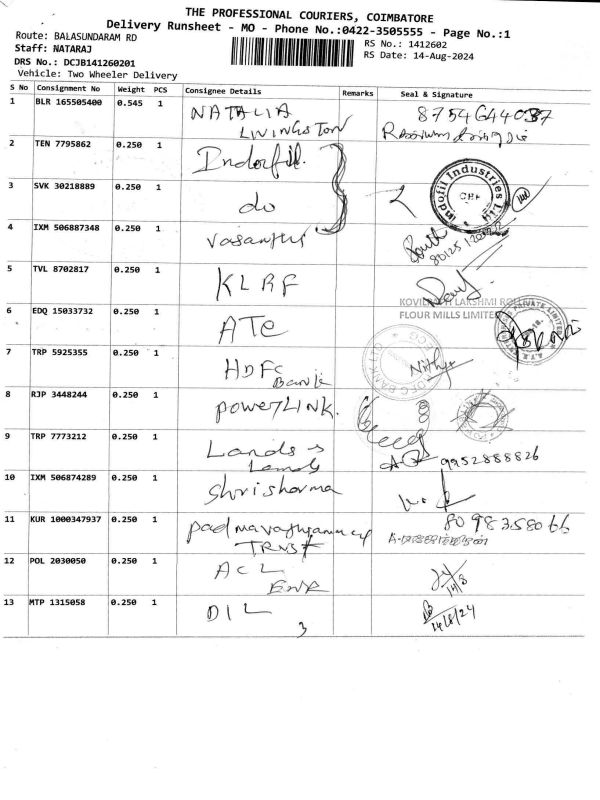 THE PROFESSIONAL COURIERS, COIMBATORE
Delivery Runsheet - MO - Phone No.:0422-3505555 - Page No.:1
Route: BALASUNDARAM RD
RS No.: 1412602
Staff: NATARAJ
RS Date: 14-Aug-2024
DRS No.: DCJB141260201
Vehicle: Two Wheeler Delivery
S No Consignment No Weight PCS Consignee Details Remarks Seal & Signature
1 BLR 165505400 0.545 1 NATALIA LIVINGSTON
2 TEN 7795862 0.250 1 Indofil.
3 SVK 30218889 0.250 1 do
Indofil Industries Ltd
4 IXM 506887348 0.250 1 Vasanthi
5 TVL 8702817 0.250 1 KLRF
KOVILPATTI LAKSHMI ROLLER
FLOUR MILLS LIMITED
6 EDQ 15033732 0.250 1 ATC
7 TRP 5925355 0.250 1 HDFC Bank Nithya
8 RJP 3448244 0.250 1 POWERLINK.
9 TRP 7773212 0.250 1 Lands &
9952888826
10 IXM 506874289 0.250 1 Shri sharma
11 KUR 1000347937 0.250 1 TRUST 8098358066
12 POL 2030050 0.250 1 ACL
14/8
13 MTP 1315058 0.250 1 DIL
14/8/24
3